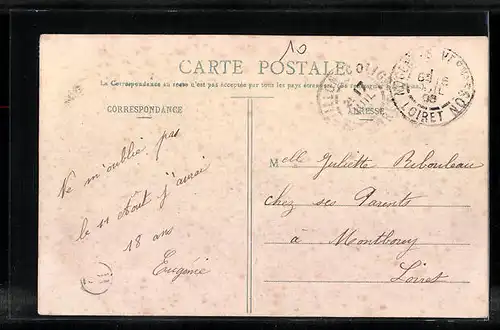 10
CARTE POSTALE
La Correspondance au recto n'est pas acceptée par tous les pays étrangers.
CORRESPONDANCE
ADRESSE
Ne m'oublie pas
le 11 Août j'aurai
18 ans
Eugénie
Melle Juliette Ribouleau
chez ses Parents
à Montbouy
Loiret
LOIRET